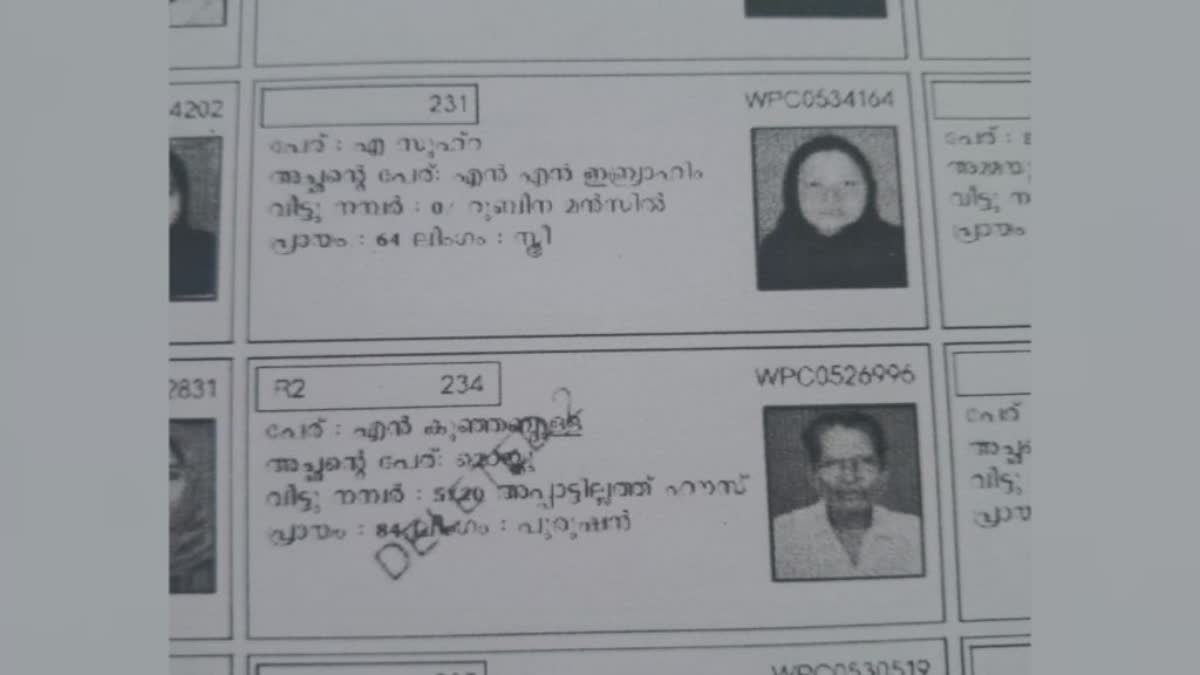 4202
231
WPC0534164
പേര് : എ സുഹ്റ
അച്ഛന്റെ പേര്: എൻ എൻ ഇബ്രാഹിം
വീട്ടു നമ്പർ : 0/ റുബീന മൻസിൽ
പ്രായം : 64 ലിംഗം : സ്ത്രീ
പേര് :
അമ്മയു
വീട്ടു ന
പ്രായം
2831
R2 234
WPC0526996
പേര് : എൻ കുഞ്ഞബ്ദുള്ള
അച്ഛന്റെ പേര്:
വീട്ടു നമ്പർ : അപ്പാട്ടില്ലത്ത് ഹൗസ്
പ്രായം : 84 ലിംഗം : പുരുഷൻ
DELETED
പേര്
അച്ഛ
വീട്ടു
പ്രായ
WPC0530519